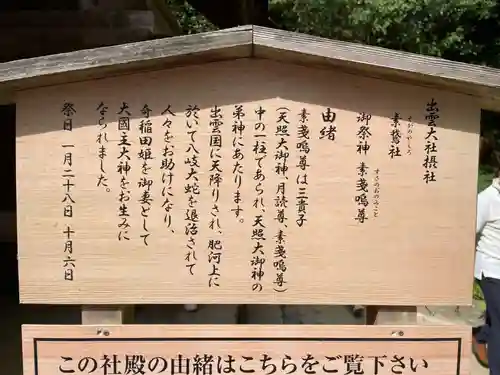 出雲大社摂社
そがのやしろ
素鵞社
すさのおのみこと
御祭神 素戔嗚尊
由緒
素戔嗚尊は三貴子
(天照大御神、月読尊、素戔嗚尊)
中の一柱であられ、天照大御神の
弟神にあたります。
出雲国に天降りされ、肥河上に
於いて八岐大蛇を退治されて
人々をお助けになり、
奇稲田姫を御妻として
大国主大神をお生みに
なられました。
祭日 一月二十八日 十月六日
この社殿の由緒はこちらをご覧下さい